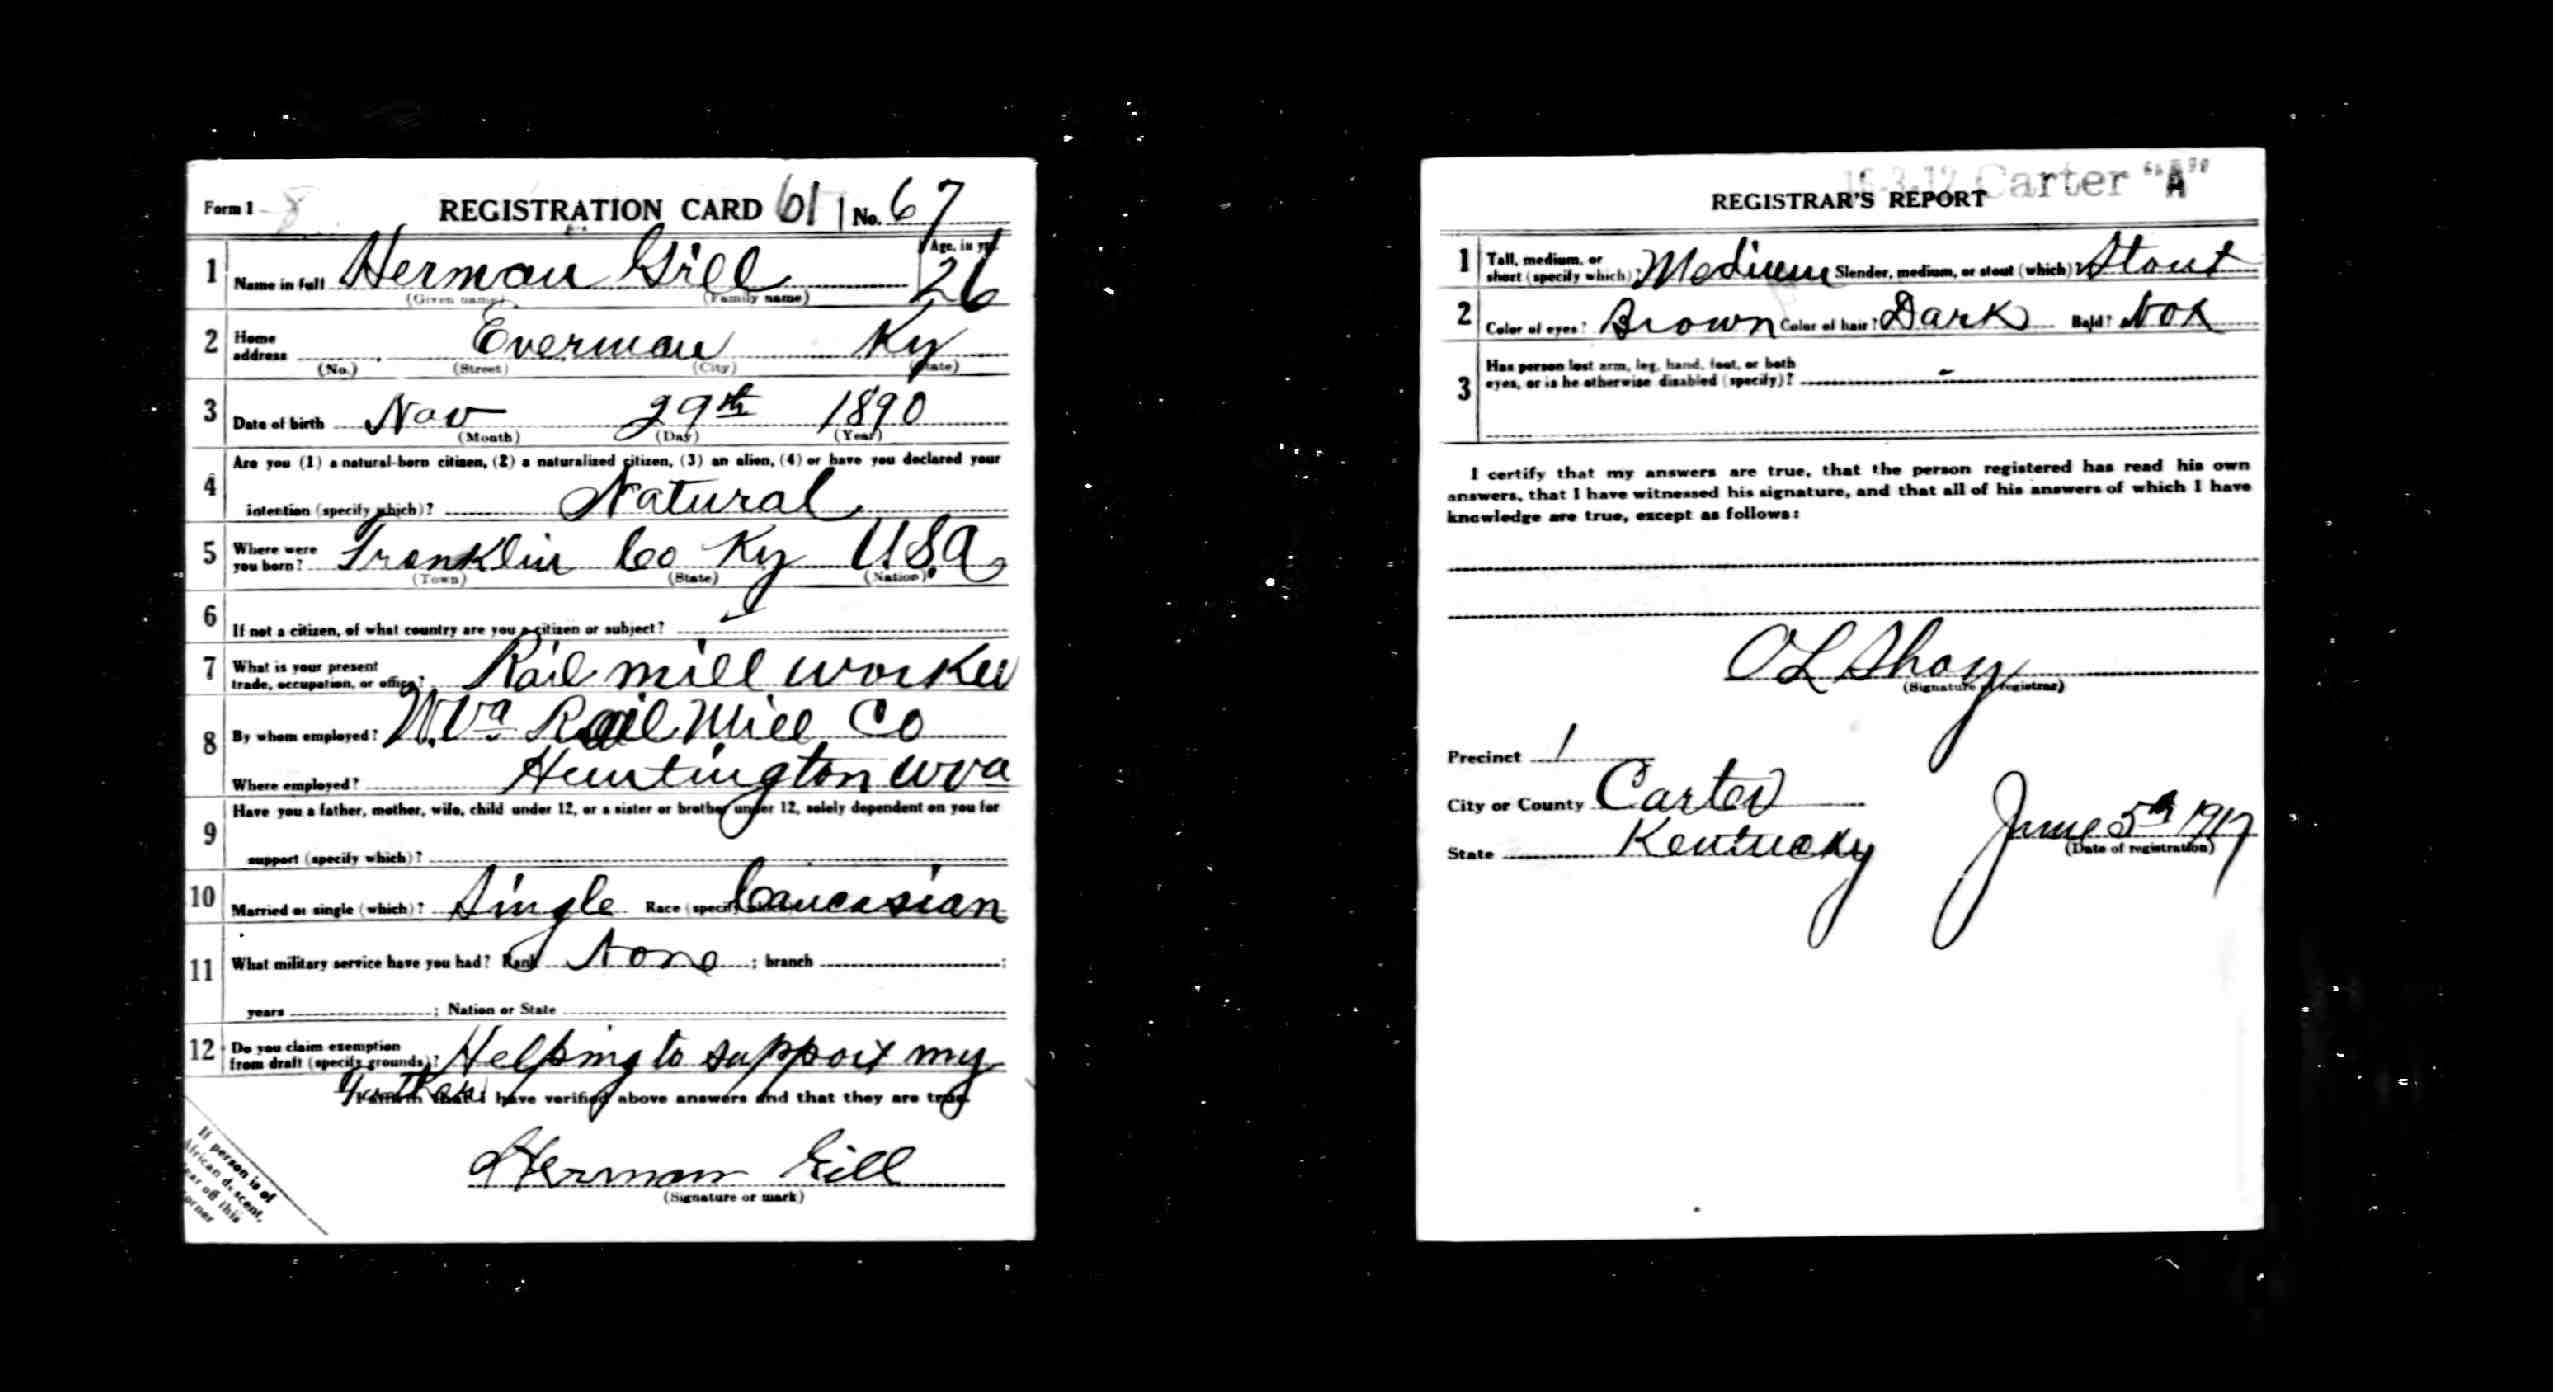 Form 1 REGISTRATION CARD 61 No. 67
1 Name in full Herman Gill Age, in yrs. 26
(Given name) (Family name)
2 Home address Everman Ky
(No.) (Street) (City) (State)
3 Date of birth Nov 29th 1890
(Month) (Day) (Year)
4 Are you (1) a natural-born citizen, (2) a naturalized citizen, (3) an alien, (4) or have you declared your
intention (specify which)? Natural
5 Where were you born? Franklin Co Ky USA
(Town) (State) (Nation)
6 If not a citizen, of what country are you a citizen or subject?
7 What is your present trade, occupation, or office? Rail mill worker
8 By whom employed? W.Va Rail Mill Co
Where employed? Huntington W va
9 Have you a father, mother, wife, child under 12, or a sister or brother under 12, solely dependent on you for
support (specify which)?
10 Married or single (which)? Single Race (specify which)? Caucasian
11 What military service have you had? Rank None ; branch ;
years ; Nation or State
12 Do you claim exemption from draft (specify grounds)? Helping to support my
I affirm that I have verified above answers and that they are true.
Herman Gill
(Signature or mark)
If person is of
African descent,
tear off this
corner
16-3-12 Carter "A"
REGISTRAR'S REPORT
1 Tall, medium, or short (specify which)? Medium Slender, medium, or stout (which)? Stout
2 Color of eyes? Brown Color of hair? Dark Bald? Not
3 Has person lost arm, leg, hand, foot, or both
eyes, or is he otherwise disabled (specify)? -
I certify that my answers are true, that the person registered has read his own
answers, that I have witnessed his signature, and that all of his answers of which I have
knowledge are true, except as follows:
O L Shay
(Signature of registrar)
Precinct 1
City or County Carter
State Kentucky June 5th 1917
(Date of registration)